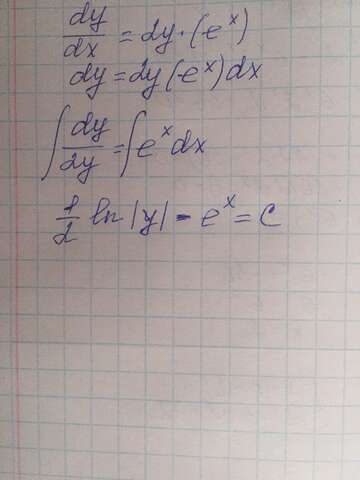 dy/dx = 2y·(-e^x)
dy = 2y(-e^x)dx
∫ dy/2y = ∫ e^x dx
1/2 ln |y| - e^x = C